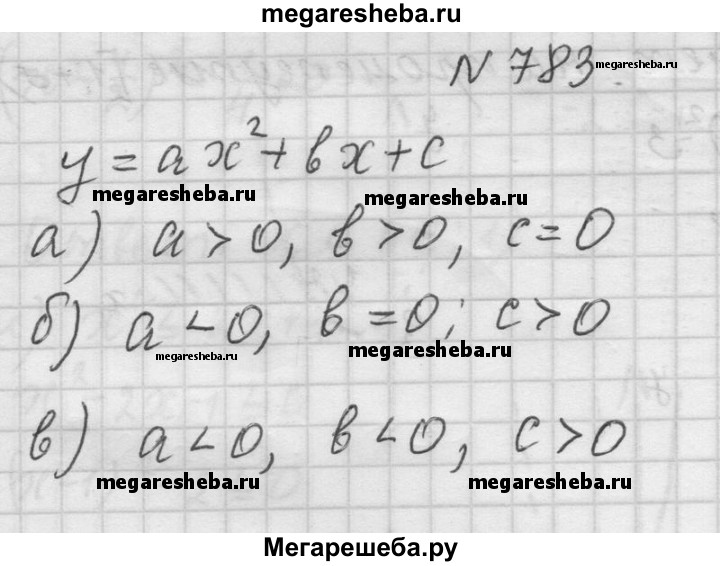 megaresheba.ru
N 783 megaresheba.ru
y = ax² + bx + c
megaresheba.ru megaresheba.ru
а) a > 0, b > 0, c = 0
megaresheba.ru
б) a < 0, b = 0; c > 0
megaresheba.ru megaresheba.ru
в) a < 0, b < 0, c > 0
megaresheba.ru megaresheba.ru
Мегарешеба.ру